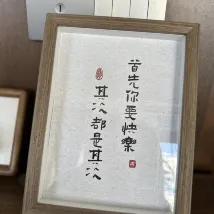 首先你要快樂
其次都是其次